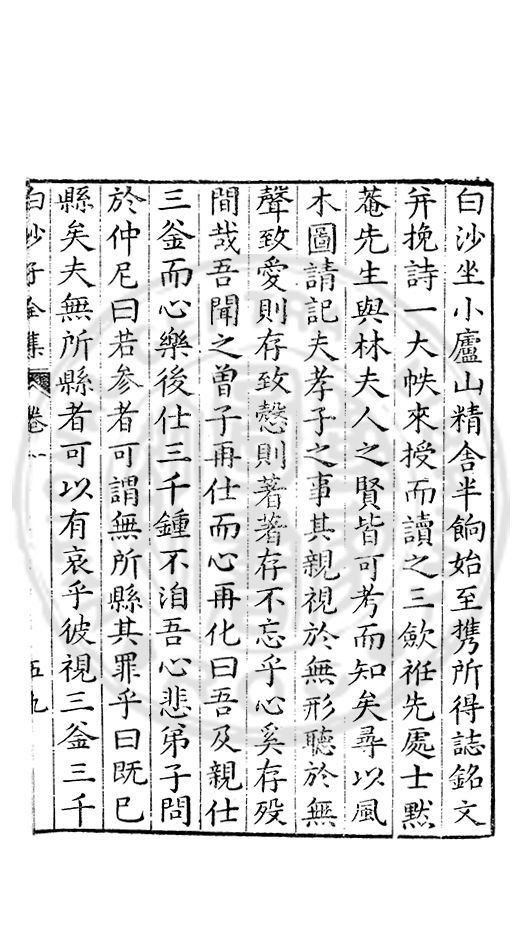 白沙坐小廬山精舎半餉始至携所得誌銘文
并挽詩一大帙來授而讀之三歛袵先處士黙
菴先生與林夫人之賢皆可考而知矣尋以風
木圖請記夫孝子之事其親視於無形聽於無
聲致愛則存致慤則著著存不忘乎心奚存殁
間哉吾聞之曽子再仕而心再化曰吾及親仕
三釜而心樂後仕三千鍾不洎吾心悲弟子問
於仲尼曰若参者可謂無所縣其罪乎曰既已
縣矣夫無所縣者可以有哀乎彼視三釜三千
白沙子全集 卷一 五九